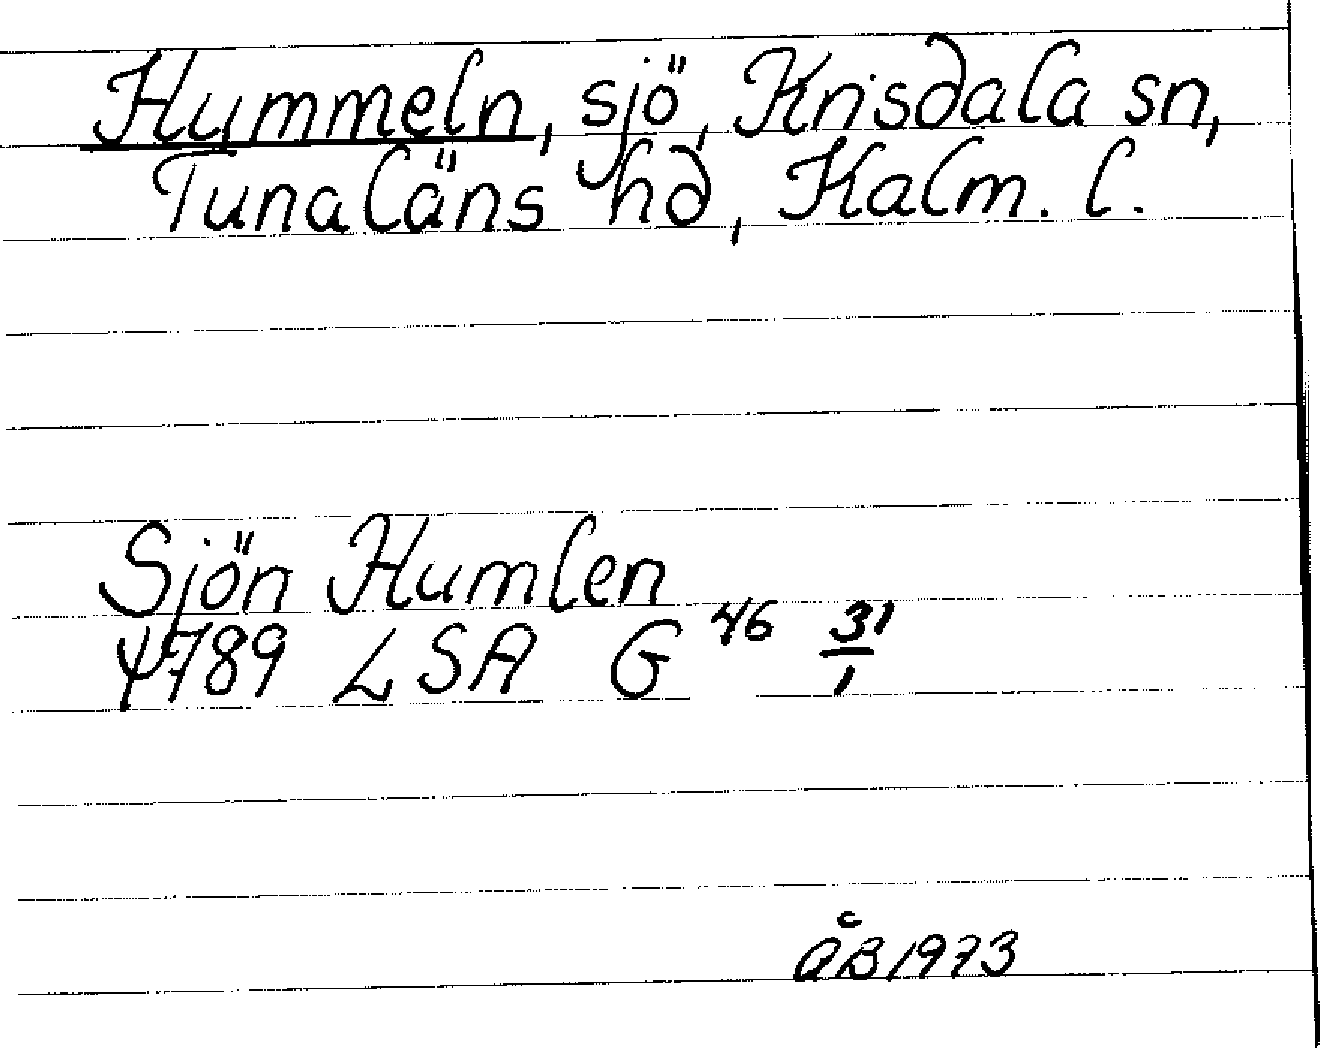 Hummeln, sjö, Krisdala sn,
Tunaläns hd, Kalm. l.
Sjön Humlen
1789 LSA G 46 31/1
ÅB 1973